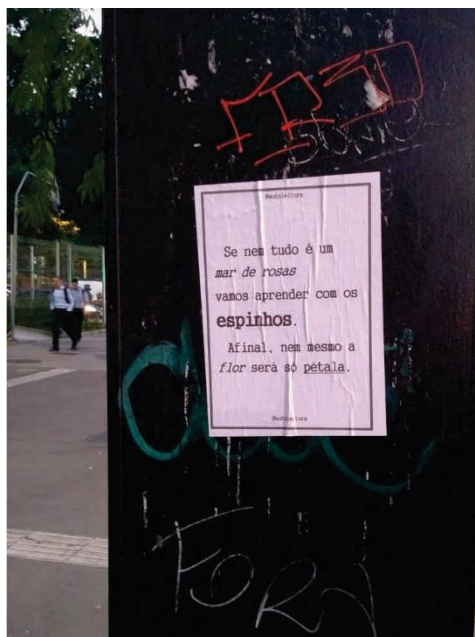 @autoleitura
Se nem tudo é um
mar de rosas
vamos aprender com os
espinhos.
Afinal, nem mesmo a
flor será só pétala.
@autoleitura